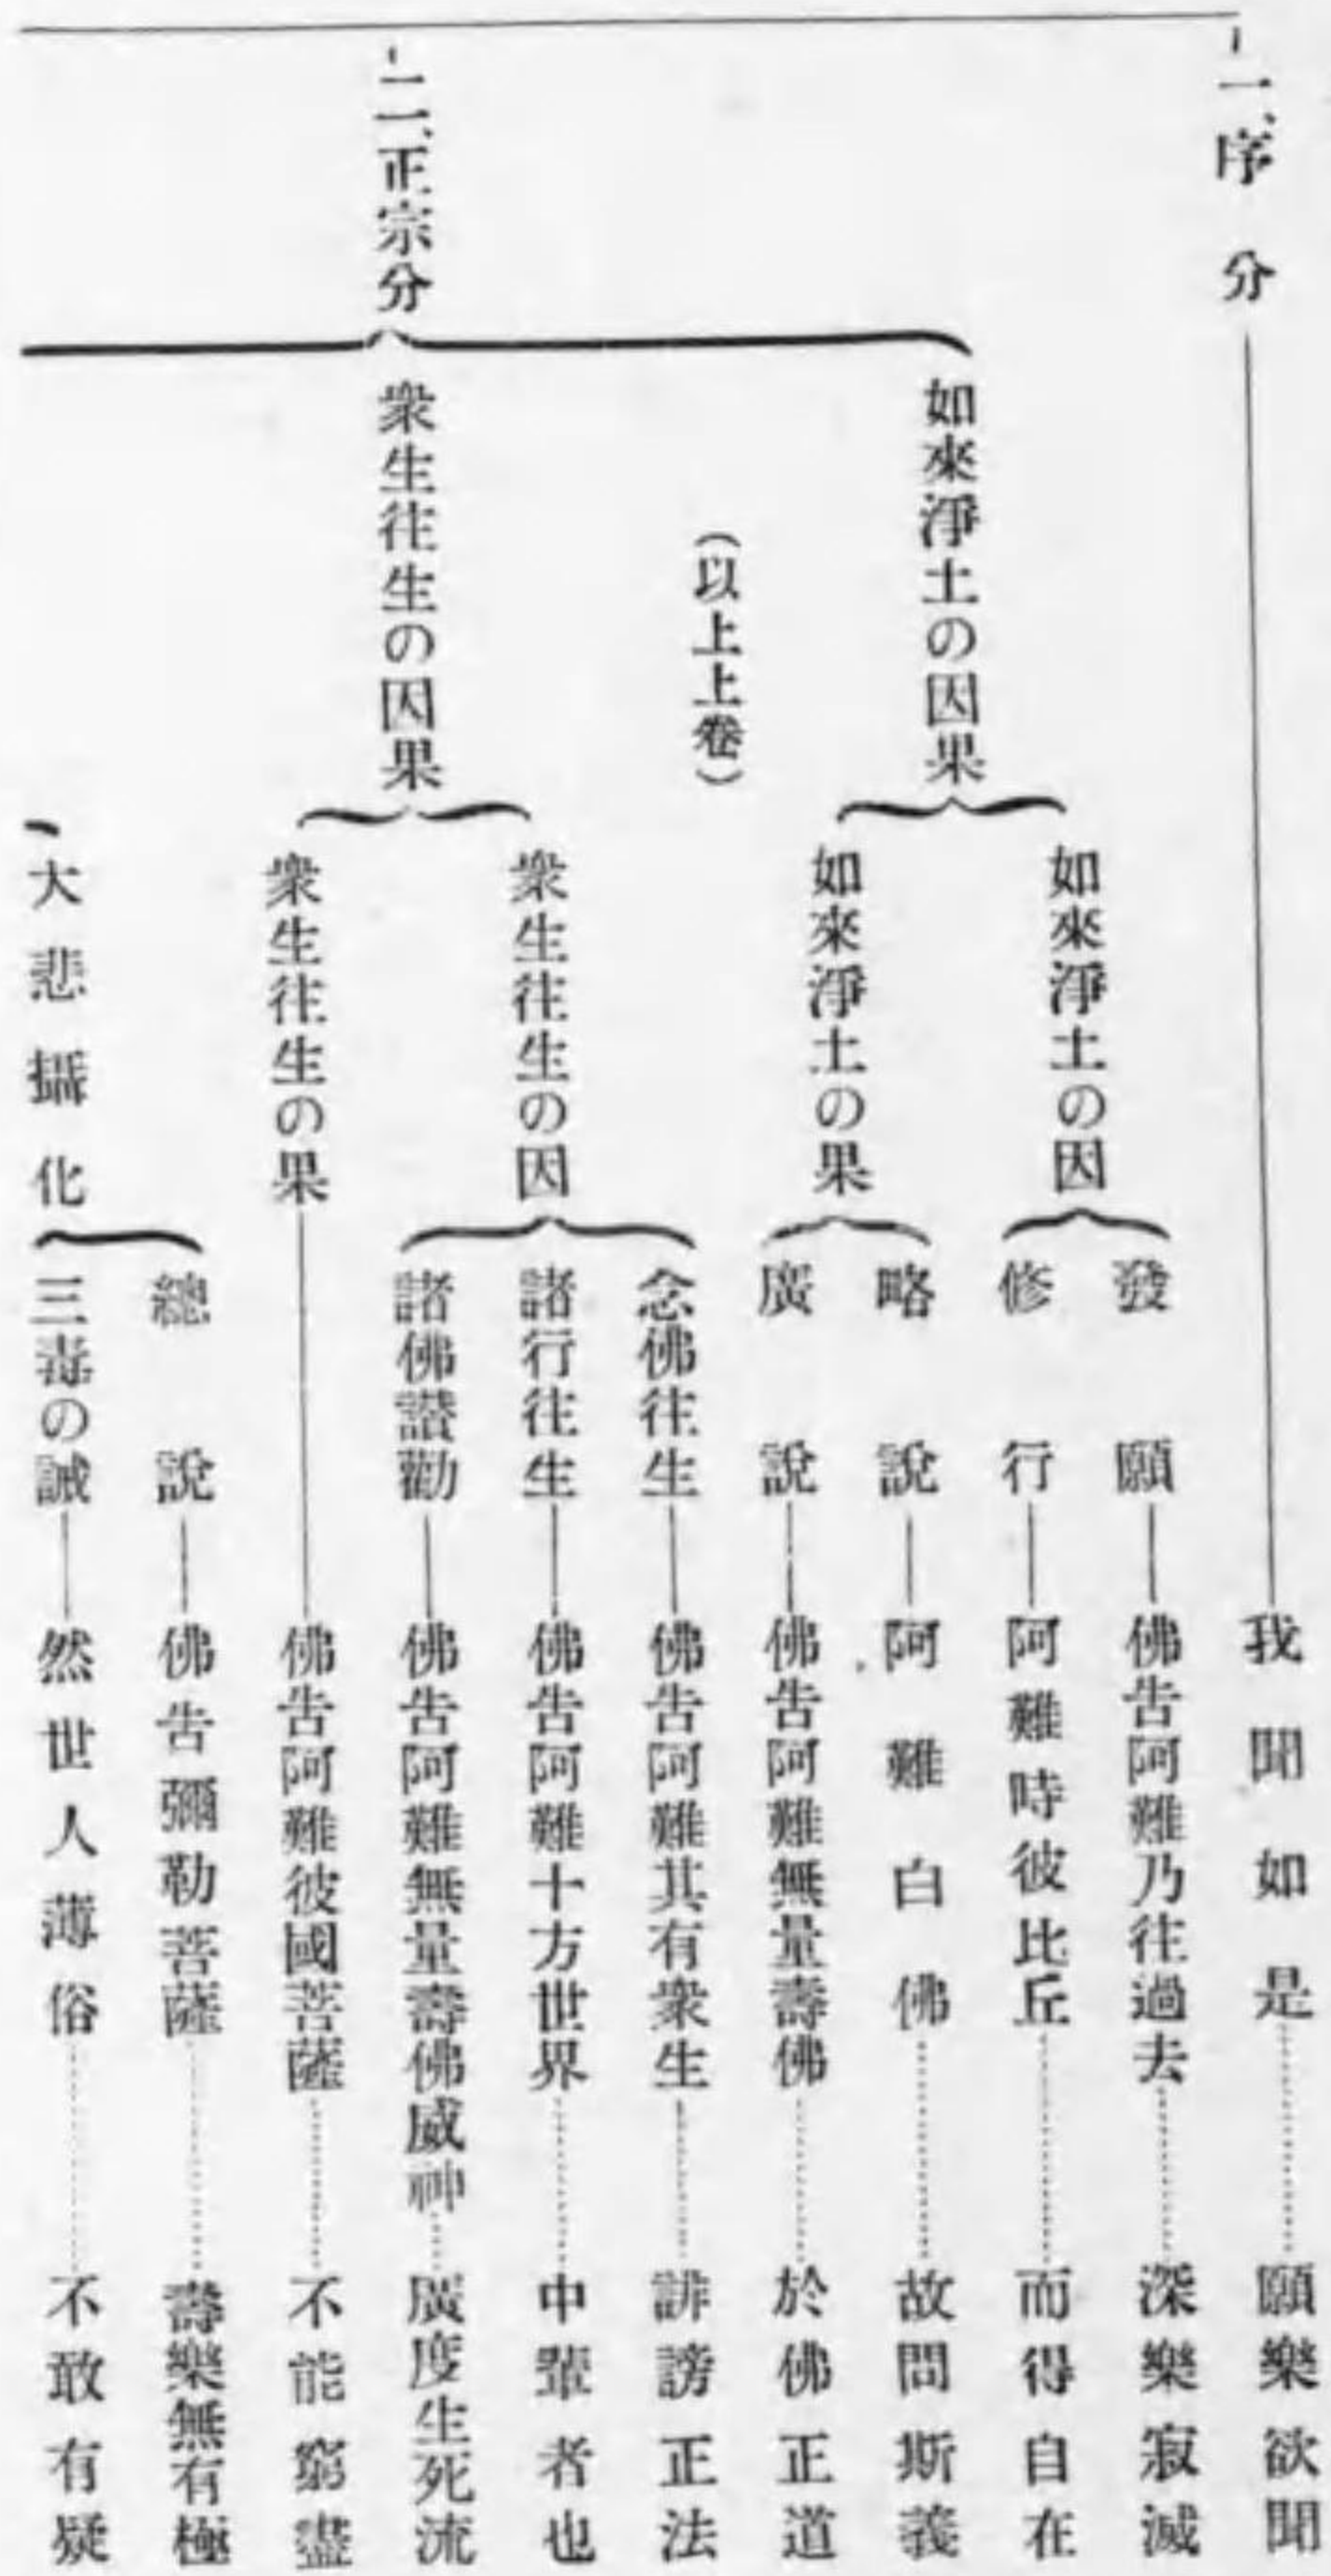 一、序分
我聞如是………願樂欲聞
二、正宗分
如來淨土の因果
如來淨土の因
發願
佛告阿難乃往過去………深樂寂滅
修行
阿難時彼比丘………而得自在
如來淨土の果
略說
阿難白佛………故問斯義
廣說
佛告阿難無量壽佛………於佛正道
(以上上卷)
衆生往生の因果
衆生往生の因
念佛往生
佛告阿難其有衆生………誹謗正法
諸行往生
佛告阿難十方世界………中輩者也
諸佛讃勸
佛告阿難無量壽佛威神……廣度生死流
衆生往生の果
佛告阿難彼國菩薩………不能窮盡
大悲攝化
總說
佛告彌勒菩薩………壽樂無有極
三毒の誡
然世人薄俗………不敢有疑